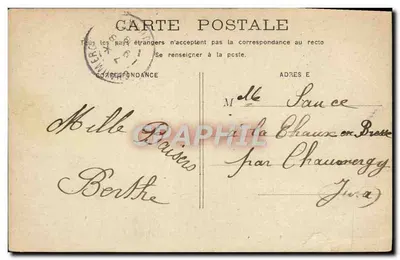 CARTE POSTALE
Tous les pays étrangers n'acceptent pas la correspondance au recto
Se renseigner à la poste.
CORRESPONDANCE
ADRESSE
Mille Baisers
Berthe
Melle Sauce
à la Chaux en Bresse
par Chaumergy
Jura)
CPARAMA